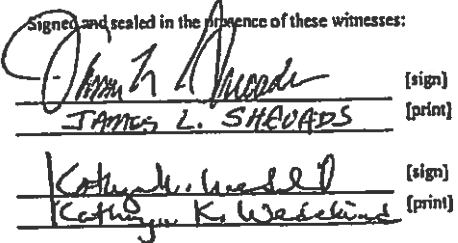 Signed and sealed in the presence of these witnesses:
[sign]
JAMES L. SHEUADS [print]
[sign]
Kathryn K. Wedekind [print]